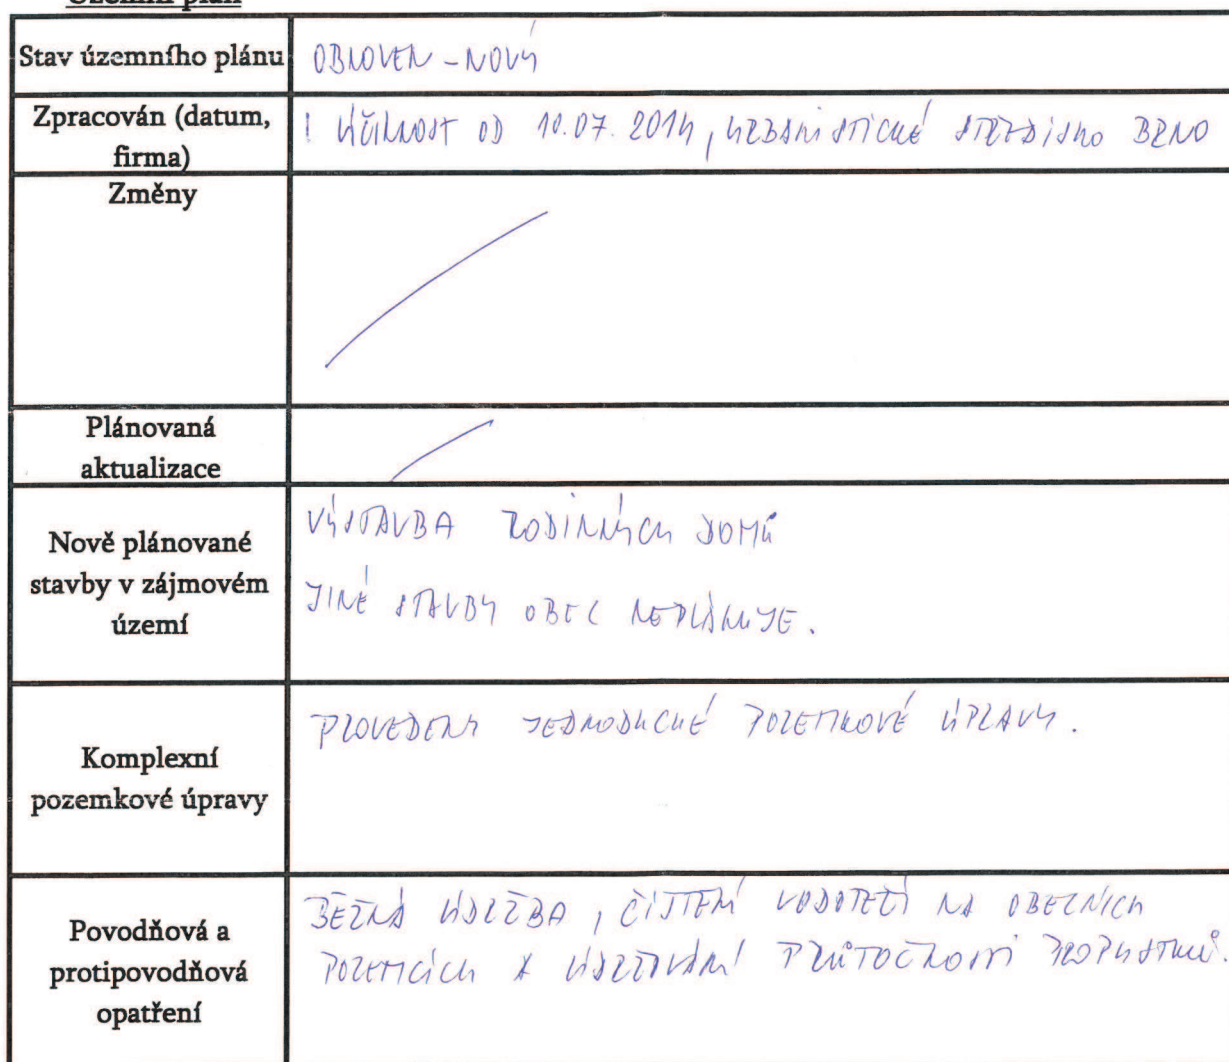 Územní plán
Stav územního plánu
OBNOVEN - NOVÝ
Zpracován (datum,
firma)
ÚČINNOST OD 10.07.2014, URBANISTICKÉ STŘEDISKO BRNO
Změny
Plánovaná
aktualizace
Nově plánované
stavby v zájmovém
území
VÝSTAVBA RODINNÝCH DOMŮ
JINÉ STAVBY OBEC NEPLÁNUJE.
Komplexní
pozemkové úpravy
PROVEDENY JEDNODUCHÉ POZEMKOVÉ ÚPRAVY.
Povodňová a
protipovodňová
opatření
BĚŽNÁ ÚDRŽBA, ČIŠTĚNÍ VODOTEČÍ NA OBECNÍCH
POZEMCÍCH A UDRŽOVÁNÍ PRŮTOČNOSTI PROPUSTKŮ.